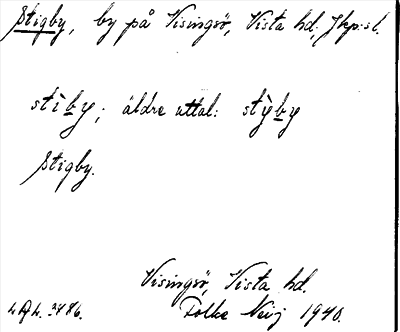 Stigby, by på Visingsö, Vista hd; Jkp:s l.
stìby; äldre uttal: stỳby
Stigby.
Visingsö, Vista hd.
Folke Neij 1940.
3786.